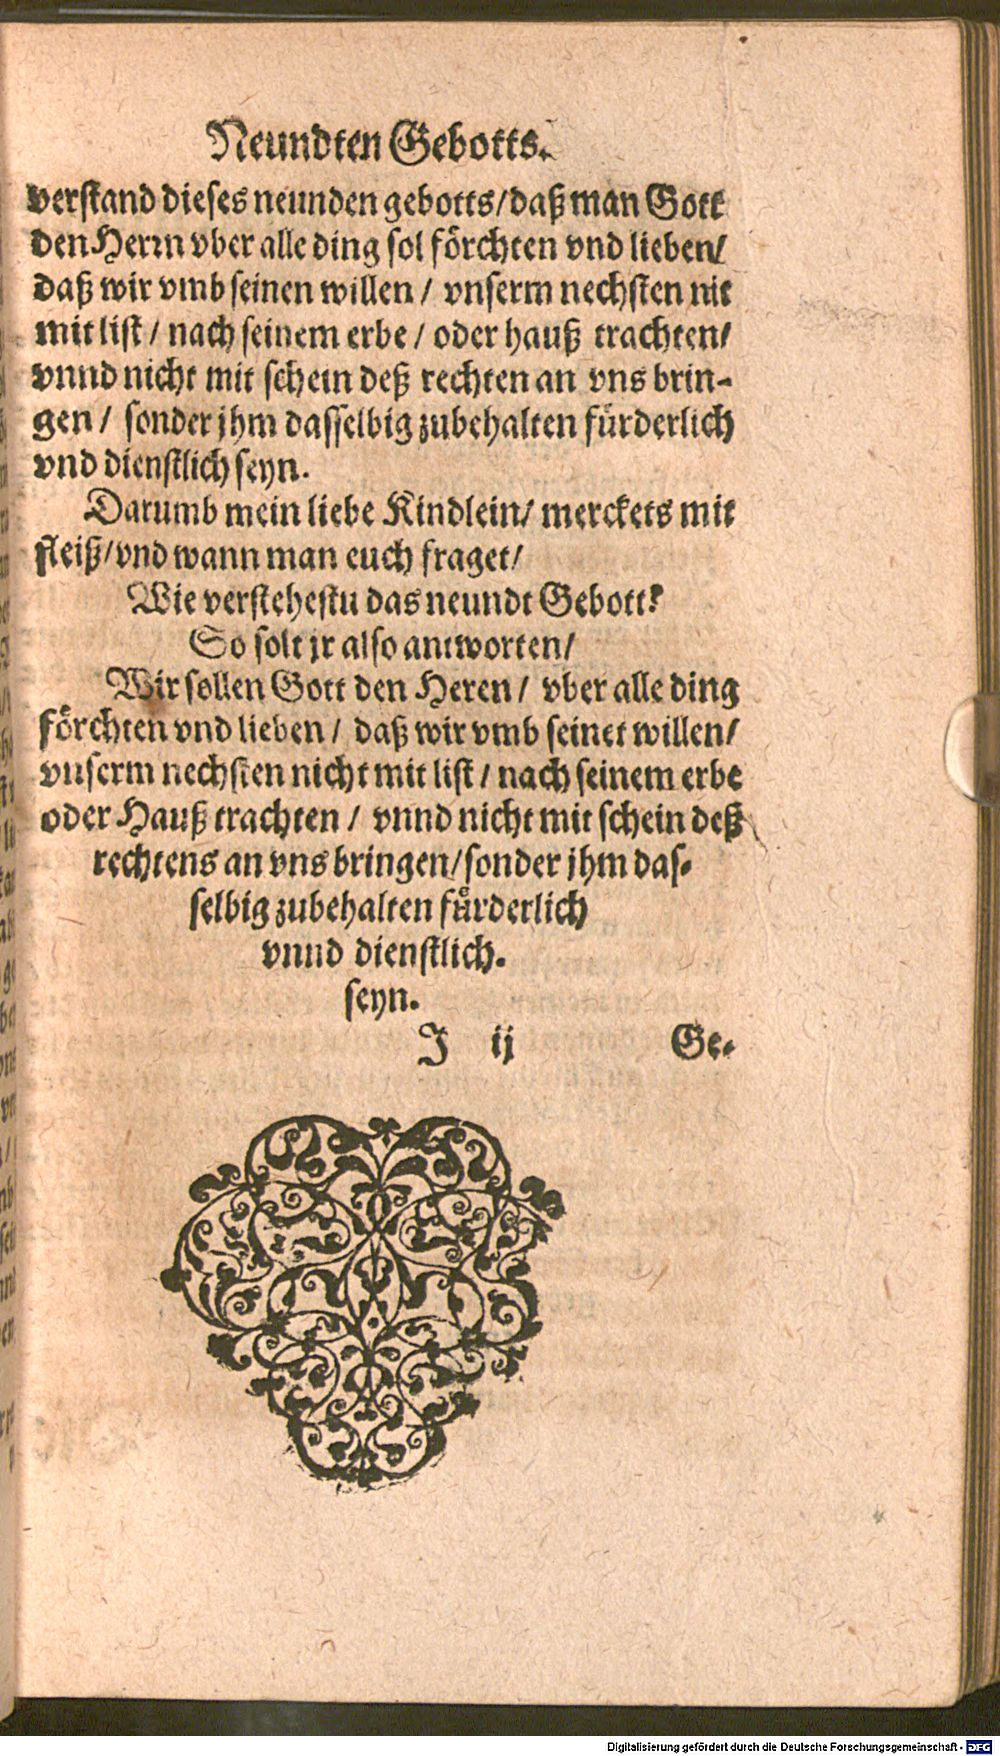 Neundten Gebotts.
verstand dieses neunden gebotts/daß man Gott
den Herrn vber alle ding sol förchten vnd lieben/
daß wir vmb seinen willen / vnserm nechsten nit
mit list / nach seinem erbe / oder hauß trachten/
vnnd nicht mit schein deß rechten an vns brin-
gen / sonder jhm dasselbig zubehalten fürderlich
vnd dienstlich seyn.
Darumb mein liebe Kindlein/ merckets mit
fleiß/vnd wann man euch fraget/
Wie verstehestu das neundt Gebott?
So solt jr also antworten/
Wir sollen Gott den Heren / vber alle ding
förchten vnd lieben / daß wir vmb seinet willen/
vnserm nechsten nicht mit list / nach seinem erbe
oder Hauß trachten / vnnd nicht mit schein deß
rechtens an vns bringen/sonder jhm das-
selbig zubehalten fürderlich
vnnd dienstlich.
seyn.
J ij Ge-
Digitalisierung gefördert durch die Deutsche Forschungsgemeinschaft - DFG